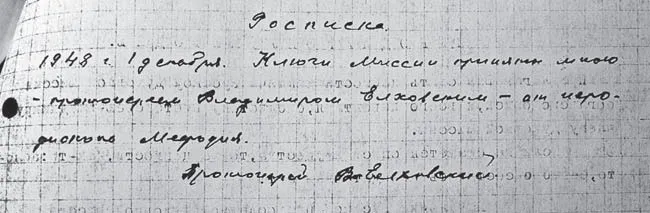 Росписка.
1948 г. 1 декабря. Ключи Миссии приняты мною
- протоиереем Владимиром Елховским - от иеро-
диакона Мефодия.
Протоиерей В. Елховский